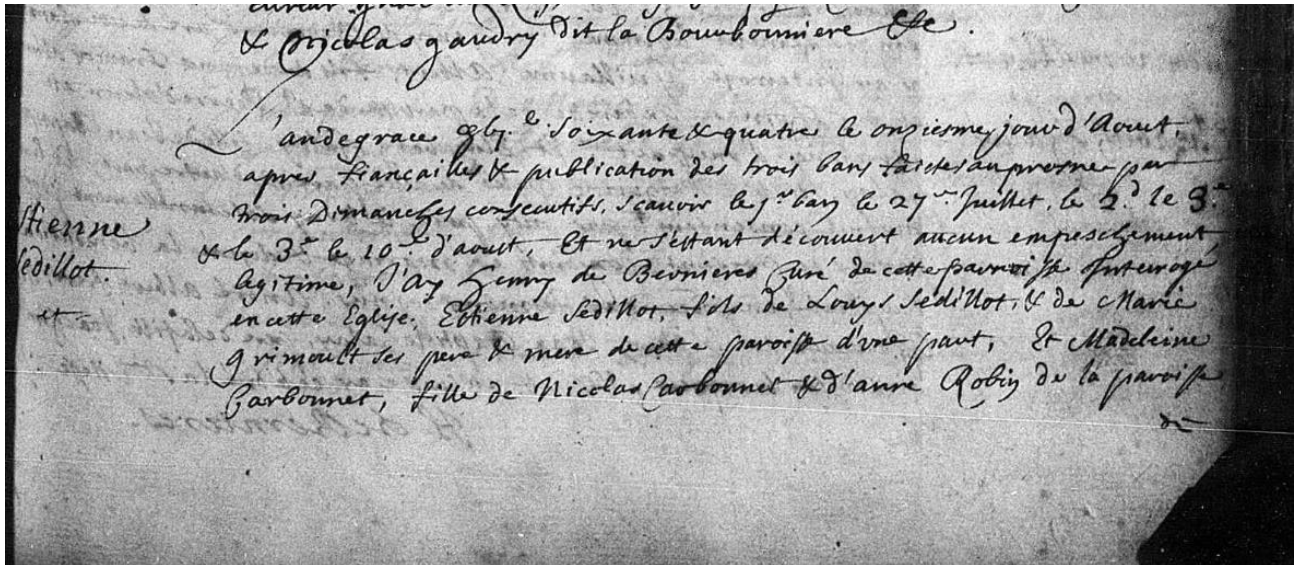 & Nicolas gaudry dit la Bourbonniere &c.
L'an de grace gbj.^e Soixante & quatre le onziesme jour d'Aoust,
apres fiançailles & publication des trois bans faictes au prosne par
trois Dimanches consecutifs, scavoir le j.^er ban le 27.^me Juillet, le 2.^d le 3.^e
& le 3.^e le 10.^me d'aoust, Et ne s'estant découvert aucun empeschement
legitime, J'ay Henry de Bernieres Curé de cette parroisse Interrogé
en cette Eglise, Estienne Sedillot, fils de Louys Sedillot, & de Marie
grimoult ses pere & mere de cette paroisse d'vne part, Et Madeleine
Carbonnet, fille de Nicolas Carbonnet & d'anne Robin de la paroisse
de
Stienne
Sedillot.
et